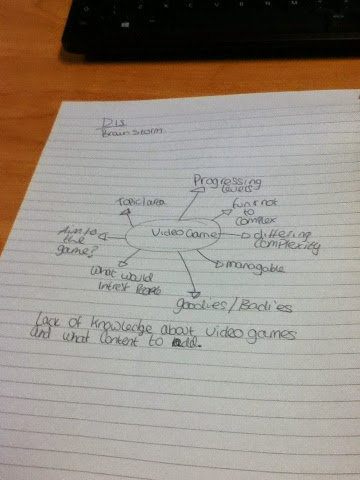 D13
Brain Storm.
Progressing
levels
Topic/area
fun & not
to
complex
Video Game
Aim to
the
game?
differing
complexity
managable
What would
intrest
goodies/Badies
Lack of knowledge about video games
and what content to add.